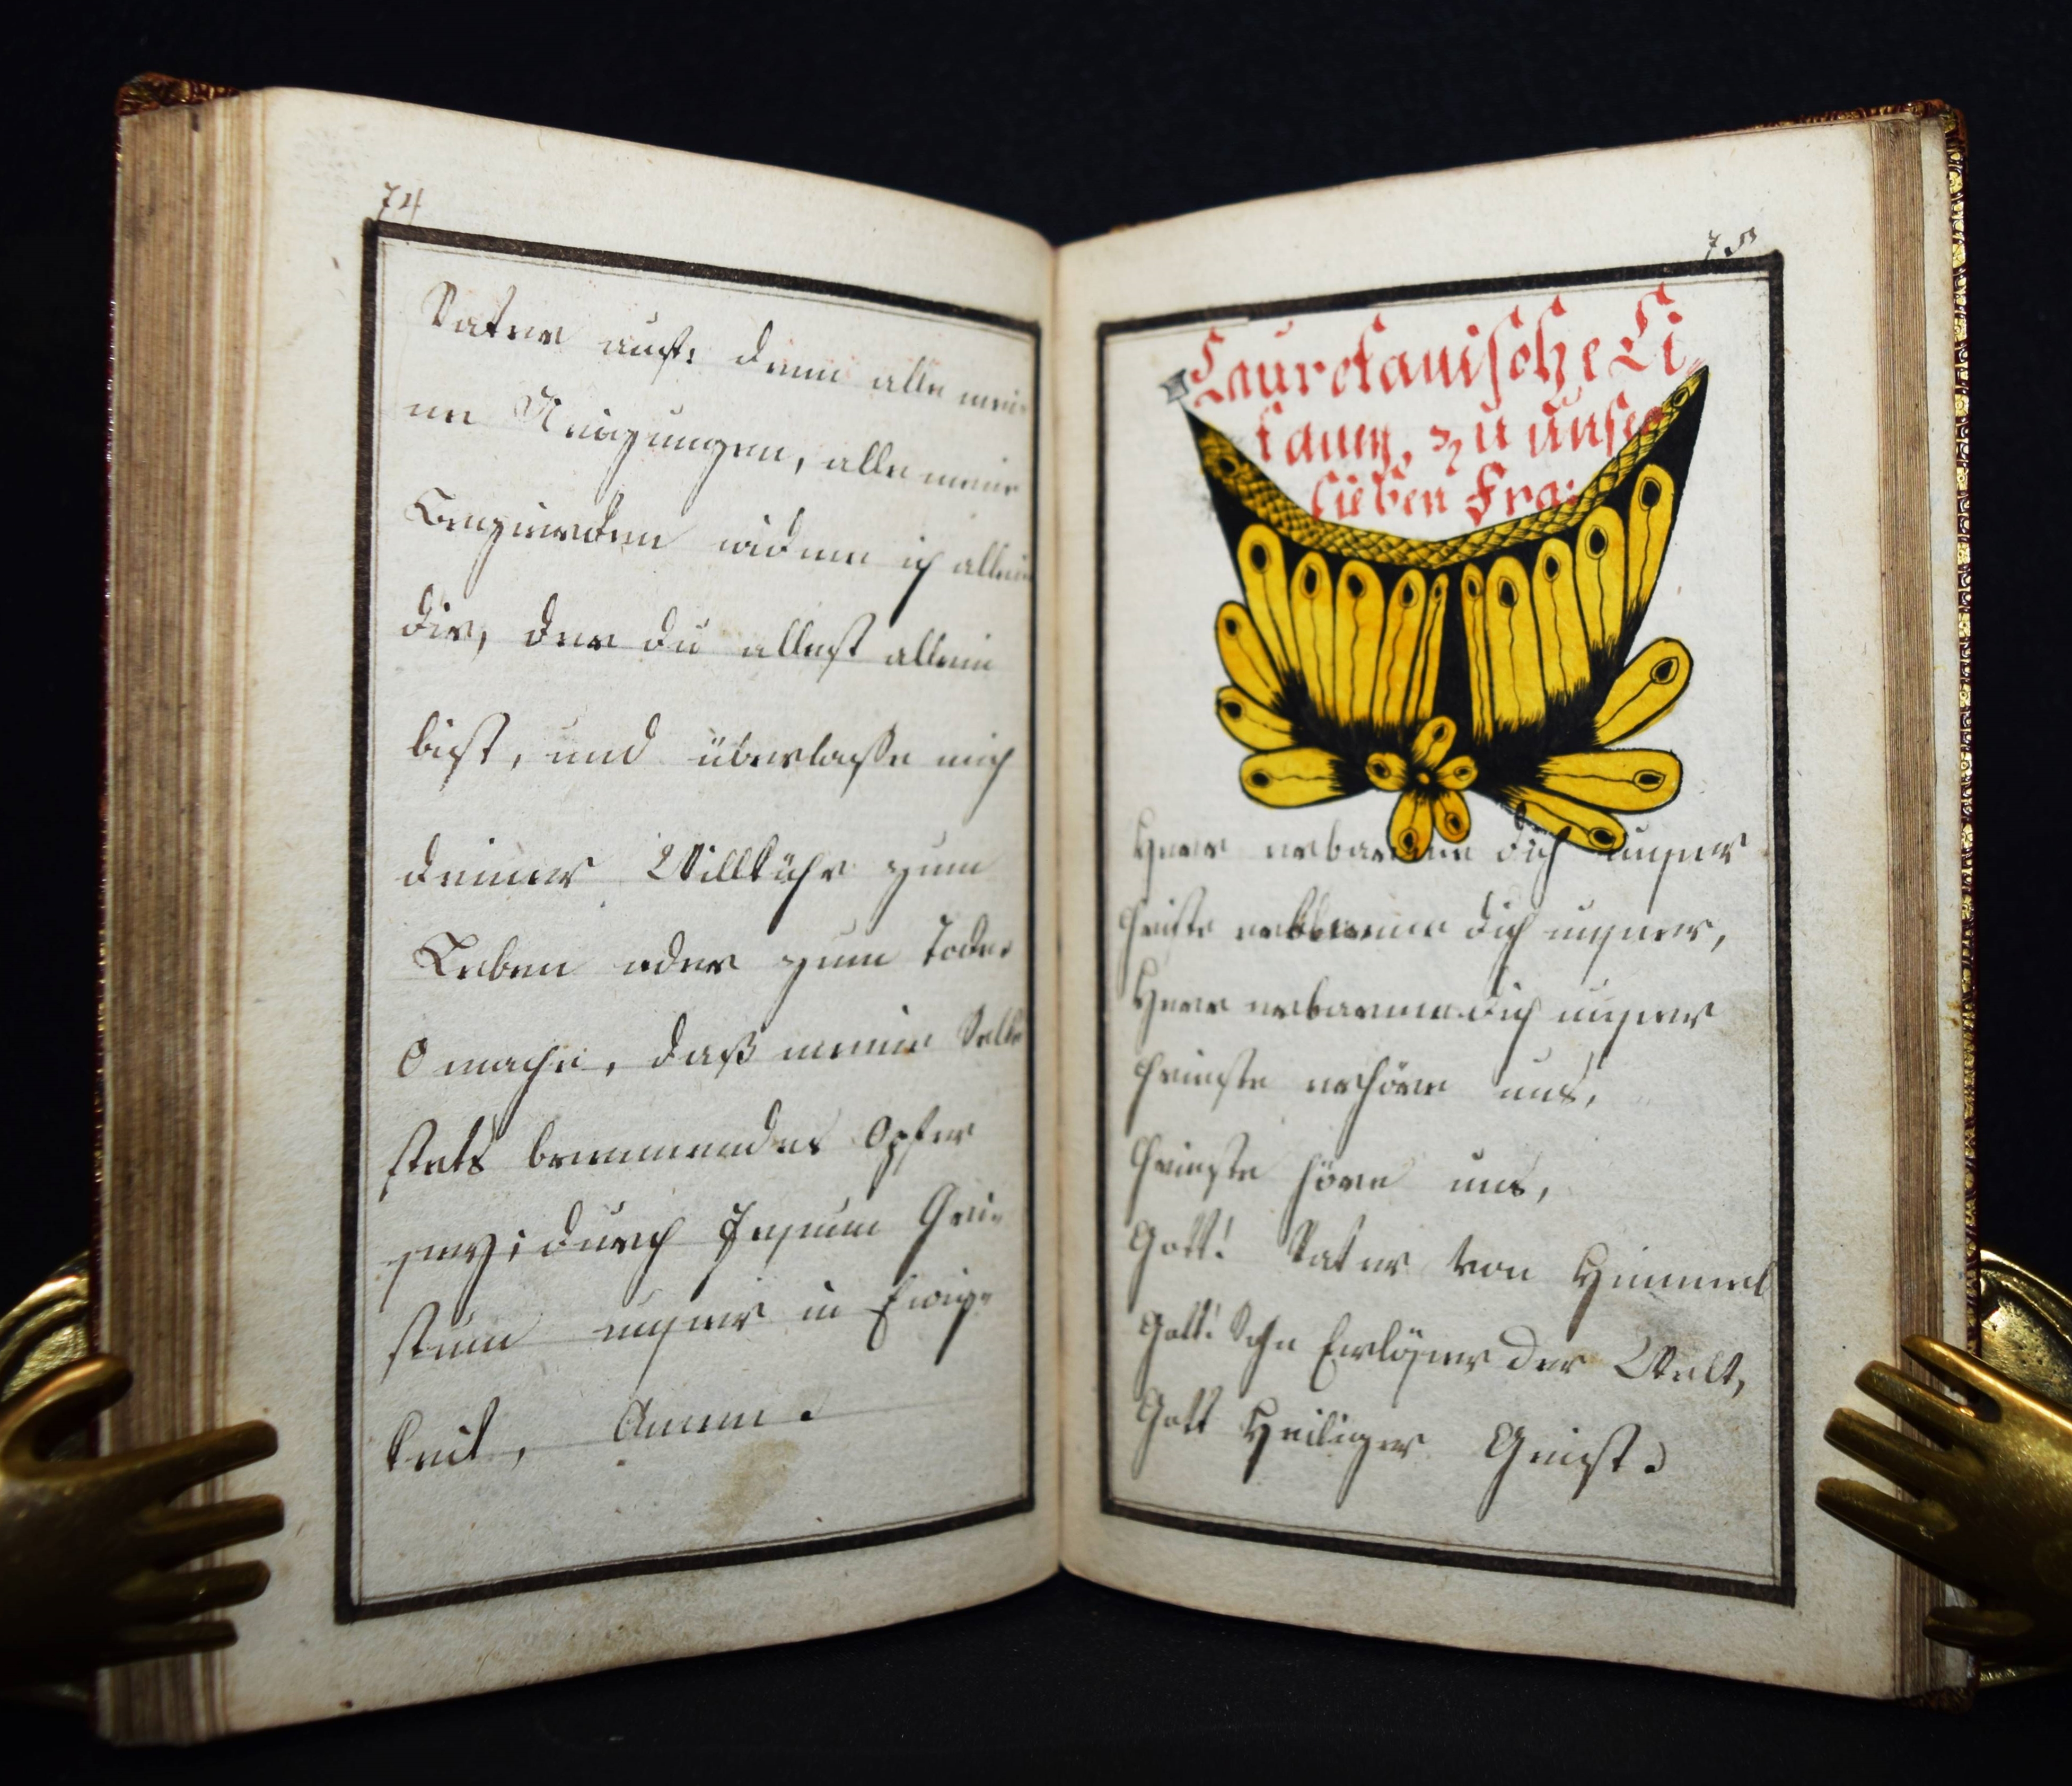 74
Vater auf: denn alle mei=
ne Neigungen, alle meine
Begierden widme ich allein
dir, der du allest allein
bist, und überlaße mich
deiner Willkühr zum
Leben oder zum Tode.
O mache, daß meine Seele
stets brennendes Opfer
sey; durch Jesum Chri=
stum unser in Ewig=
keit, Amen.
75
Lauretanische Li
taney, zu unser
lieben Fra:
Herr erbarme dich unser
Christe erbarme dich unser,
Herr erbarme dich unser
Christe erhöre uns,
Christe höre uns,
Gott! Vater von Himmel
Gott! Sohn Erlöser der Welt,
Gott Heiliger Geist.